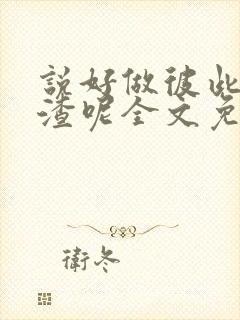 說好做彼此
渣呢全文免
衛冬